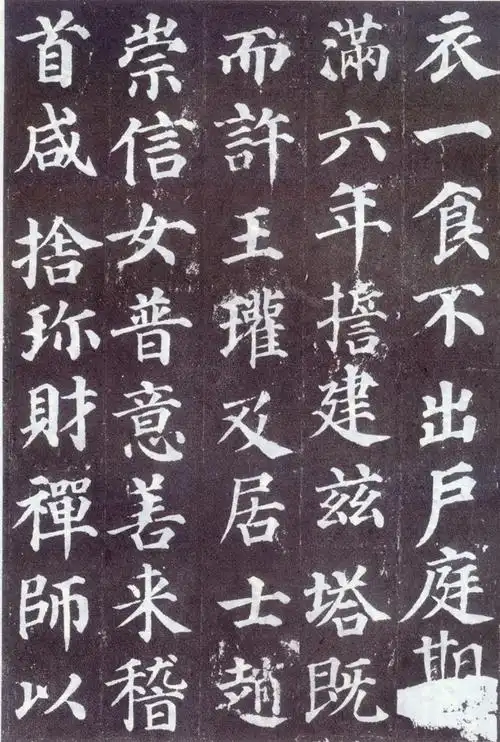 衣一食不出戶庭期
滿六年擔建兹塔既
而許王瓘及居士趙
崇信女普意善来稽
首咸捨珎財禪師以